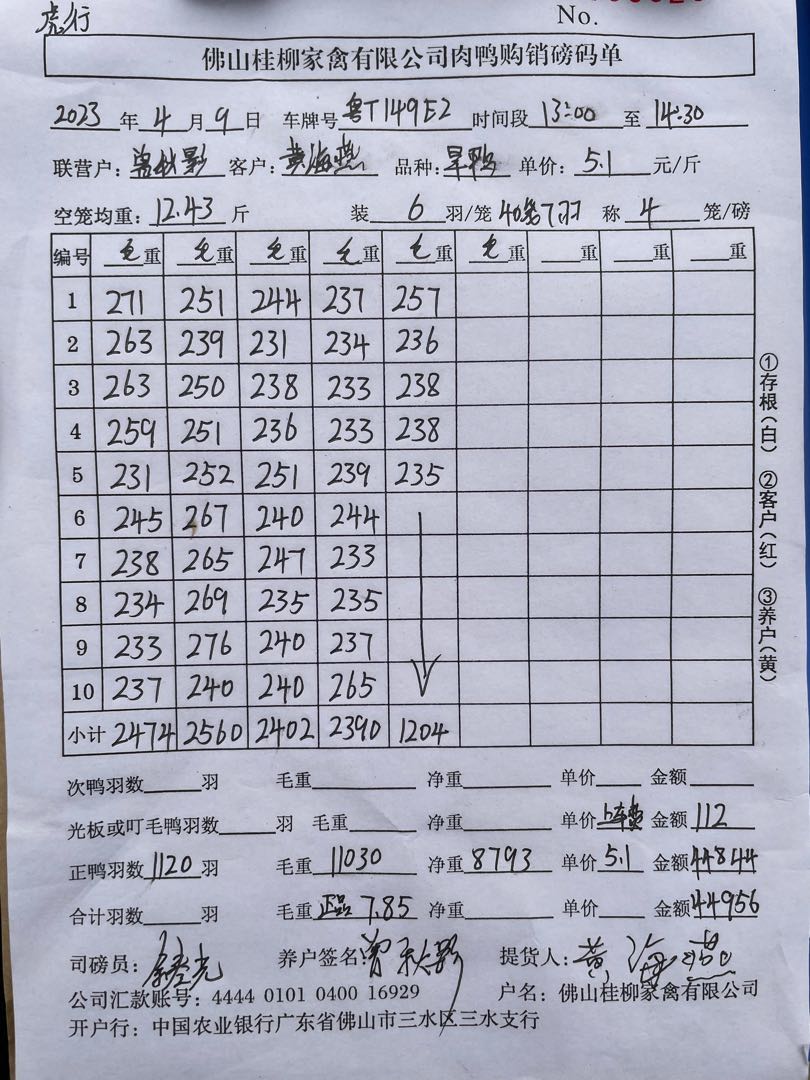 虎行
No.
佛山桂柳家禽有限公司肉鸭购销磅码单
2023 年 4 月 9 日 车牌号 粤T149E2 时间段 13:00 至 14:30
联营户: 曾秋影 客户: 黄海燕 品种: 旱鸭 单价: 5.1 元/斤
空笼均重: 12.43 斤 装 6 羽/笼 40笼7羽 称 4 笼/磅
编号 毛重 毛重 毛重 毛重 毛重 毛重 重 重 重
1 271 251 244 237 257
2 263 239 231 234 236
3 263 250 238 233 238
4 259 251 236 233 238
5 231 252 251 239 235
6 245 267 240 244
7 238 265 247 233
8 234 269 235 235
9 233 276 240 237
10 237 240 240 265
小计 2474 2560 2402 2390 1204
①存根(白) ②客户(红) ③养户(黄)
次鸭羽数 羽 毛重 净重 单价 金额
光板或叮毛鸭羽数 羽 毛重 净重 单价 上车费 金额 112
正鸭羽数 1120 羽 毛重 11030 净重 8793 单价 5.1 金额 44844
合计羽数 羽 毛重 正品 7.85 净重 单价 金额 44956
司磅员: 养户签名 曾秋影 提货人: 黄海燕
公司汇款账号: 4444 0101 0400 16929 户名: 佛山桂柳家禽有限公司
开户行: 中国农业银行广东省佛山市三水区三水支行